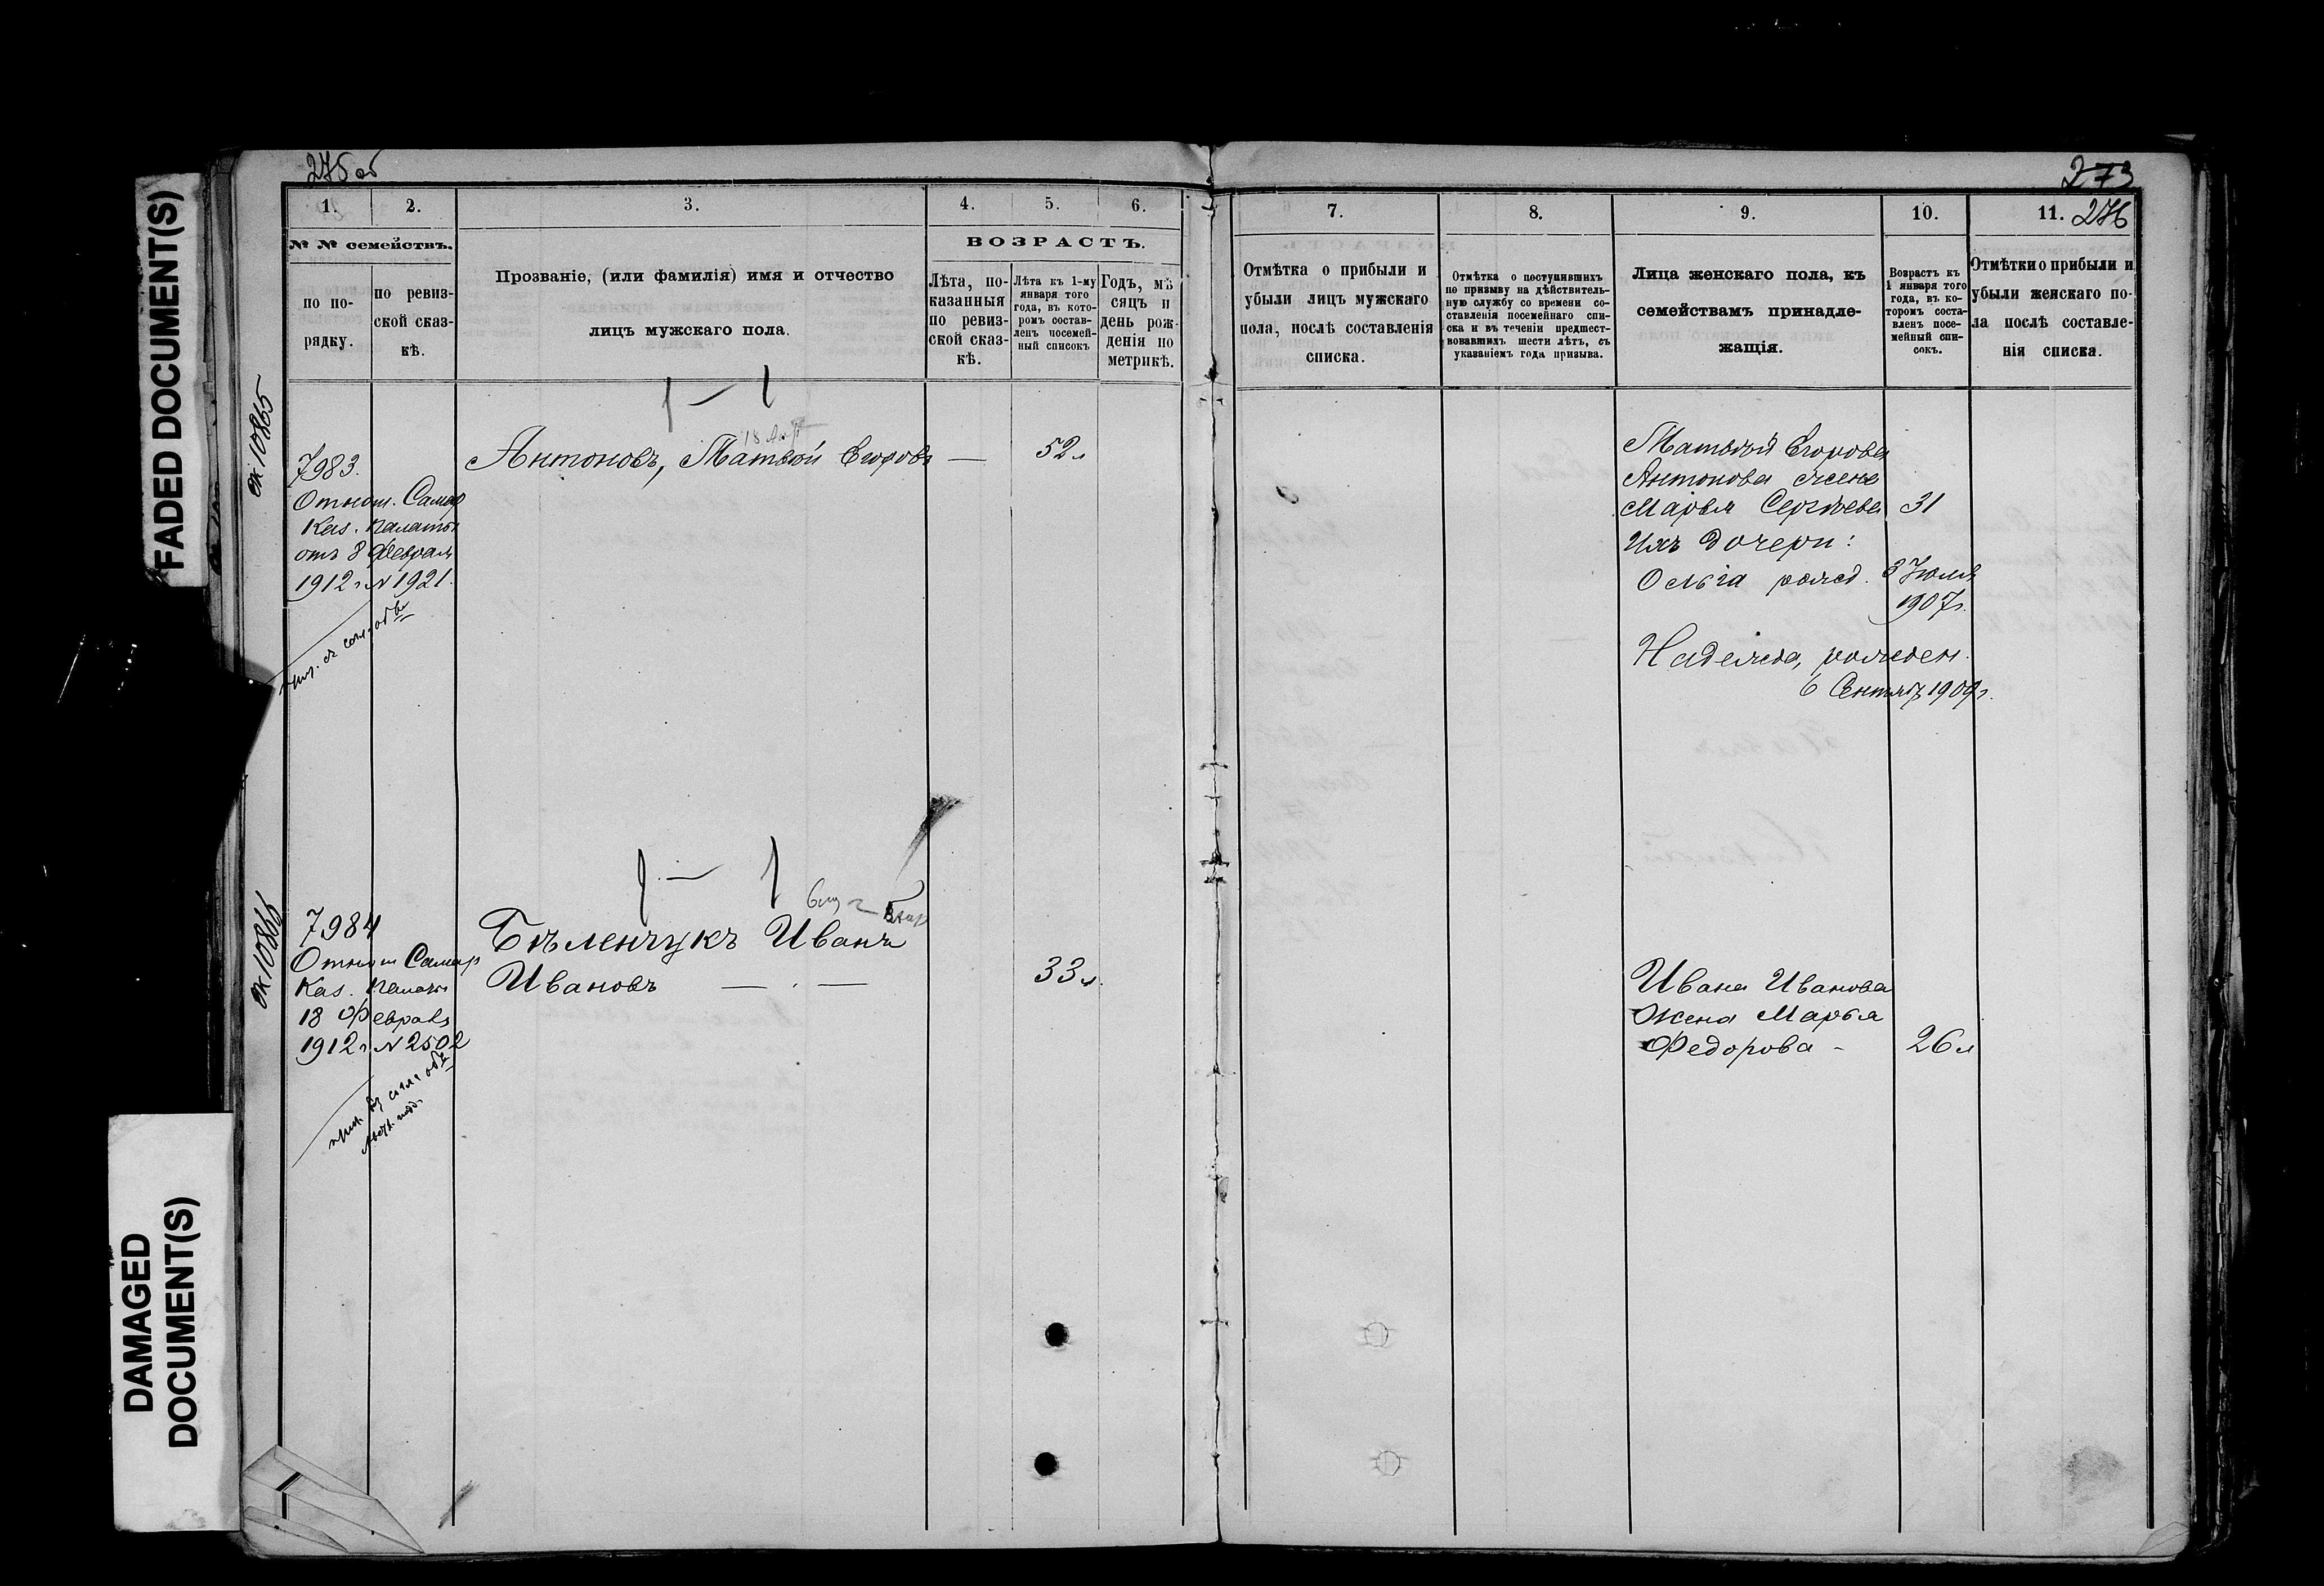 FADED DOCUMENT(S)
DAMAGED
DOCUMENT(S)
275 об
1.
2.
3.
4.
5.
6.
№ № семействъ.
ВОЗРАСТЪ.
по по-
рядку.
по ревиз-
ской сказ-
кѣ.
Прозваніе, (или фамилія) имя и отчество
лицъ мужскаго пола.
Лѣта, по-
казанныя
по ревиз-
ской сказ-
кѣ.
Лѣта къ 1-му
января того
года, въ кото-
ромъ состав-
ленъ посемей-
ный списокъ
Годъ, мѣ-
сяцъ и
день рож-
денія по
метрикѣ.
10865
7983.
Отнош. Самар
Каз. палаты
отъ 8 Февраля
1912 г № 1921.
1 — 1
Антоновъ, Матвѣй Егоровъ —
52 л
10866
7984
Отнош Самар
Каз. Палаты
18 Февраля
1912 г № 2502
1 — 1
Бѣленчукъ Иванъ
Ивановъ — . —
33 л.
273
276
7.
8.
9.
10.
11.
Отмѣтка о прибыли и
убыли лицъ мужскаго
пола, послѣ составленія
списка.
Отмѣтка о поступившихъ
по призыву на дѣйствитель-
ную службу со времени со-
ставленія посемейнаго спи-
ска и въ теченіи предшест-
вовавшихъ шести лѣтъ, съ
указаніемъ года призыва.
Лица женскаго пола, къ
семействамъ принадле-
жащія.
Возрастъ къ
1 января того
года, въ ко-
торомъ соста-
вленъ посе-
мейный спи-
сокъ.
Отмѣтки о прибыли и
убыли женскаго по-
ла послѣ составле-
нія списка.
Матвѣя Егорова
Антонова жена
Марья Сергѣева 31
Ихъ дочери:
Ольга рожд. 3 Іюля
1907 г.
Надежда, рожден.
6 Сентяб 1909 г.
Ивана Иванова
жена Марья
Федорова - 26 л